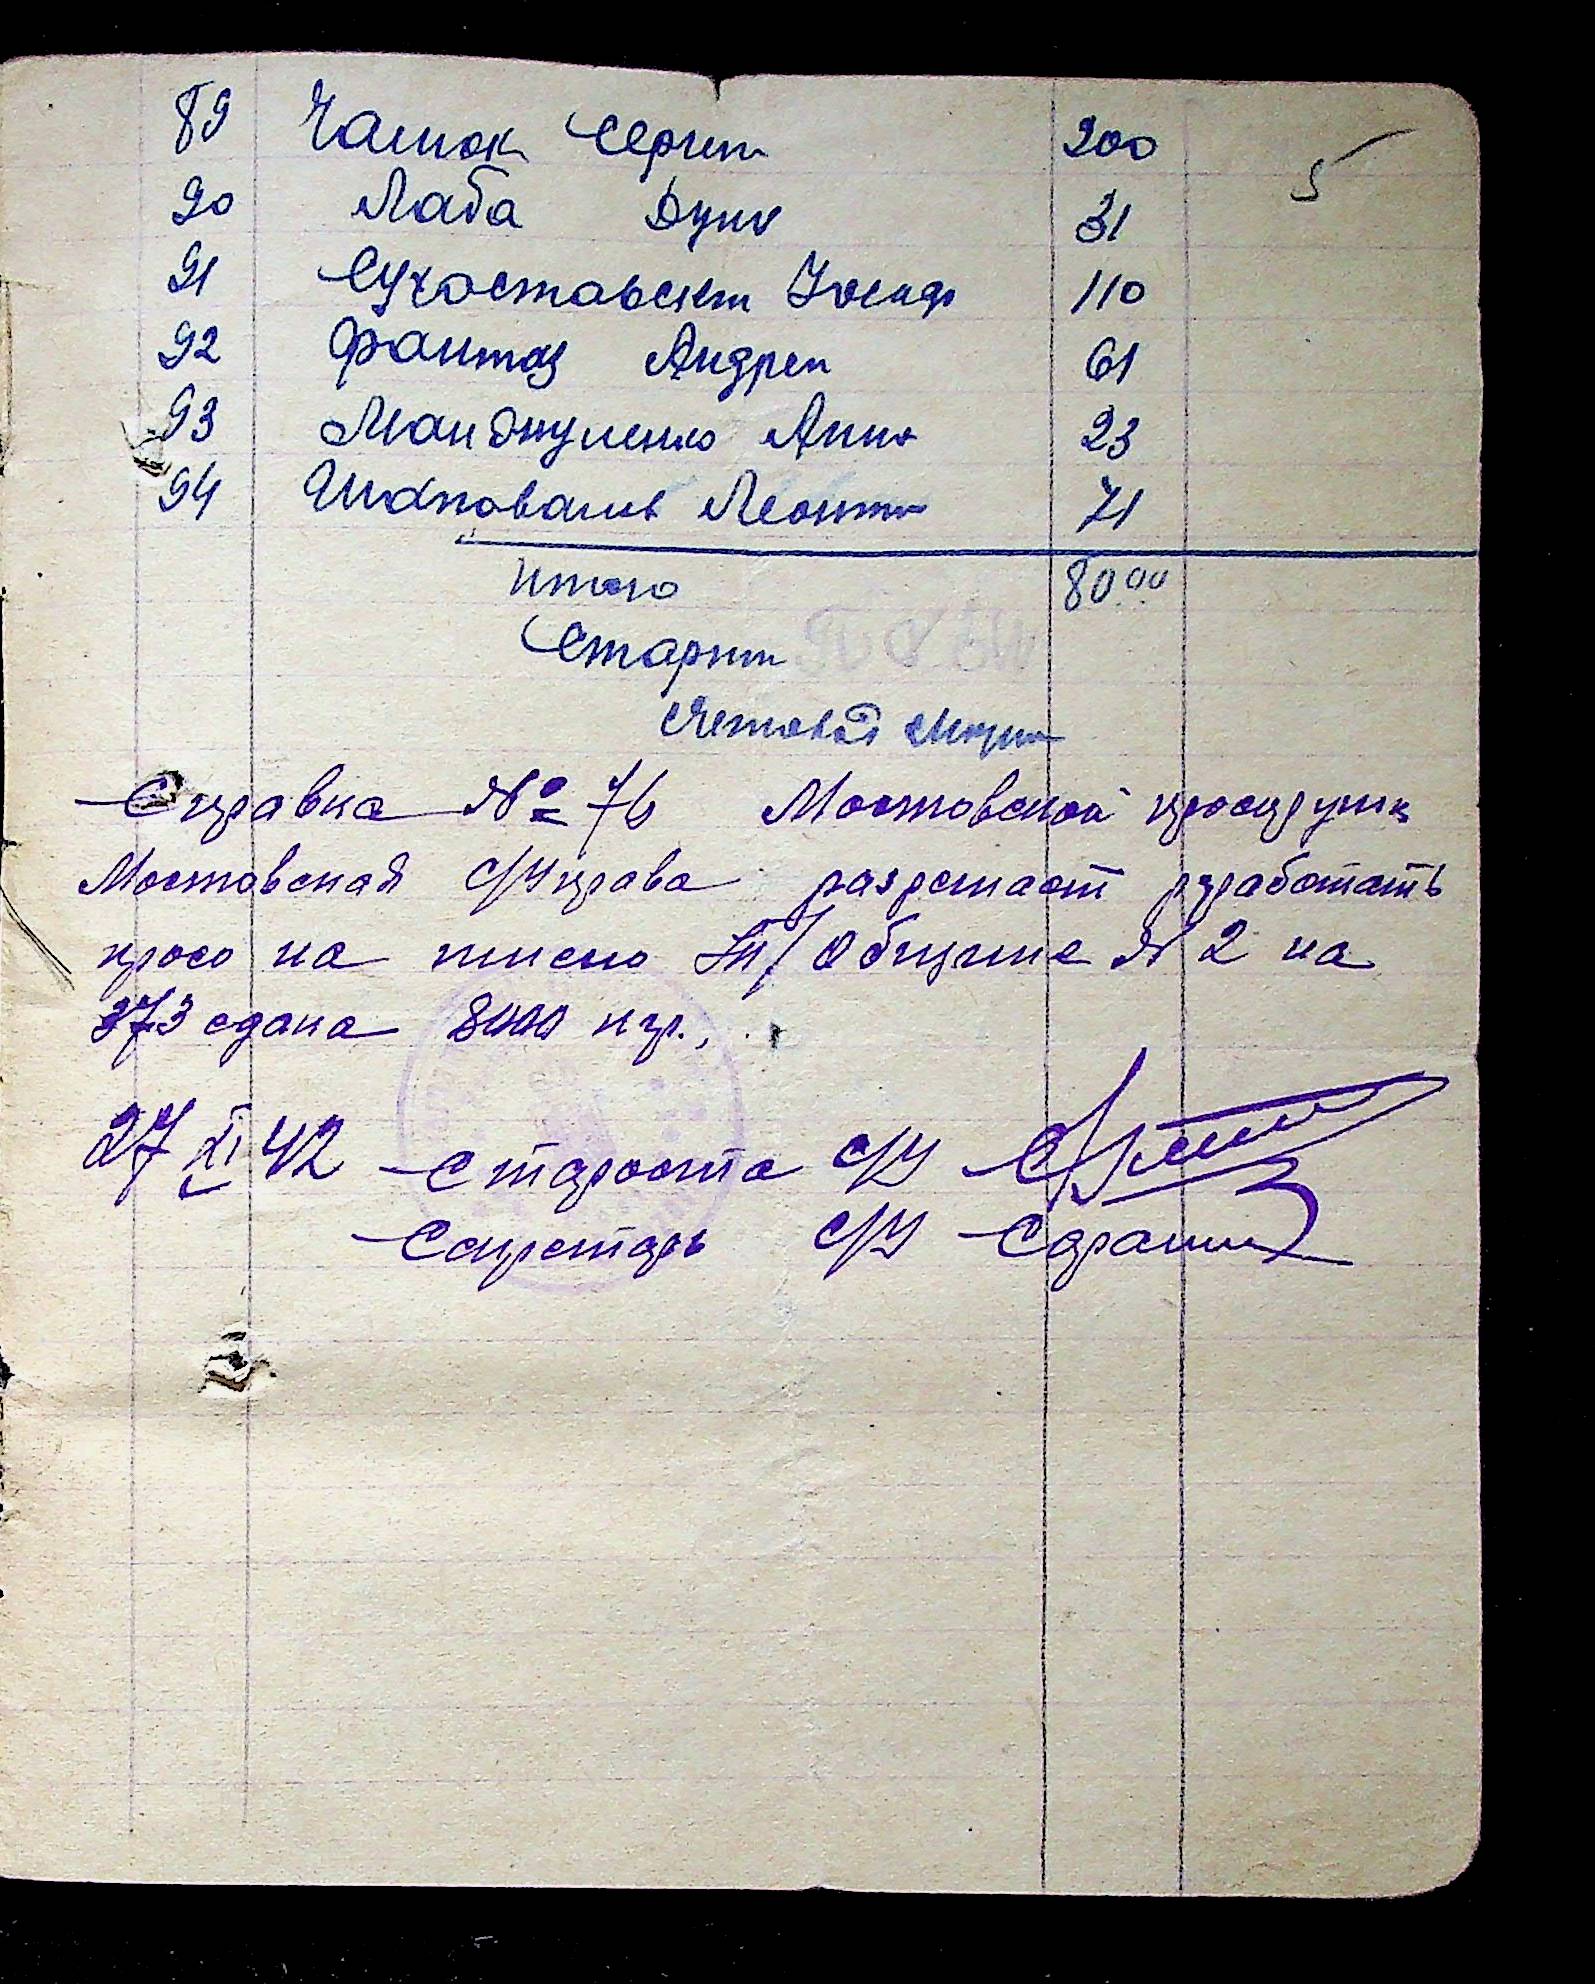 5
89 Чамок Сергей 200
90 Лаба Дуня 31
91 Сухоставский Иосиф 110
92 Фантоз Андрей 61
93 Манджуленко Анна 23
94 Шаповалов Леонтий 71
Итого 80.00
Старш
Счетовод
Справка № 76 Мостовской просорушк
Мостовская с/управа разрешает рработать
просо на пшено Общине № 2 на
373 сдана 8000 кгр.,
27 XI 42 Староста с/у
Секретарь с/у